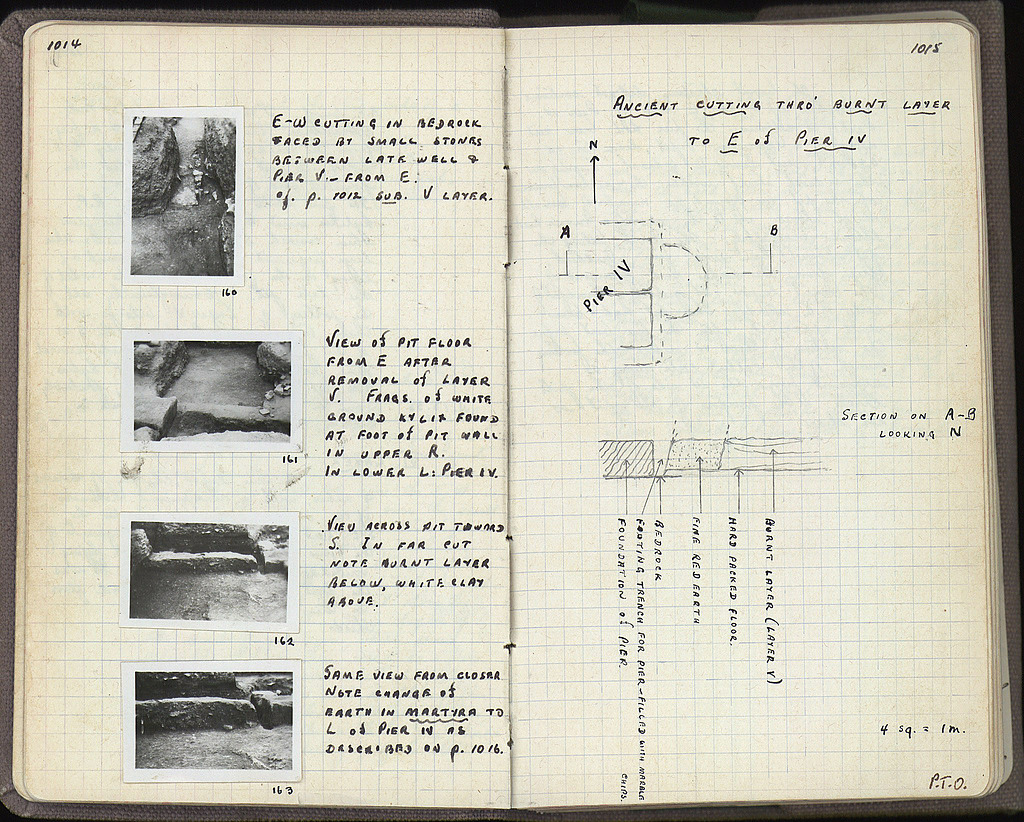 1014
E-W CUTTING IN BEDROCK
FACED BY SMALL STONES
BETWEEN LATE WELL &
PIER V. - FROM E.
cf. p. 1012 SUB. V LAYER.
160
VIEW of PIT FLOOR
FROM E AFTER
REMOVAL of LAYER
V. FRAGS. of WHITE
GROUND KYLIX FOUND
AT FOOT of PIT WALL
IN UPPER R.
IN LOWER L: PIER IV.
161
VIEW ACROSS PIT TOWARD
S. IN FAR CUT
NOTE BURNT LAYER
BELOW, WHITE CLAY
ABOVE.
162
SAME VIEW FROM CLOSER
NOTE CHANGE of
EARTH IN MARTYRA TO
L of PIER IV AS
DESCRIBED ON p. 1016.
163
1015
ANCIENT CUTTING THRO' BURNT LAYER
TO E of PIER IV
N
A
B
PIER IV
SECTION ON A-B
LOOKING N
FOUNDATION of PIER.
FOOTING TRENCH FOR PIER - FILLED WITH MARBLE
CHIPS.
BEDROCK
FINE RED EARTH
HARD PACKED FLOOR.
BURNT LAYER (LAYER V)
4 sq. = 1m.
P.T.O.